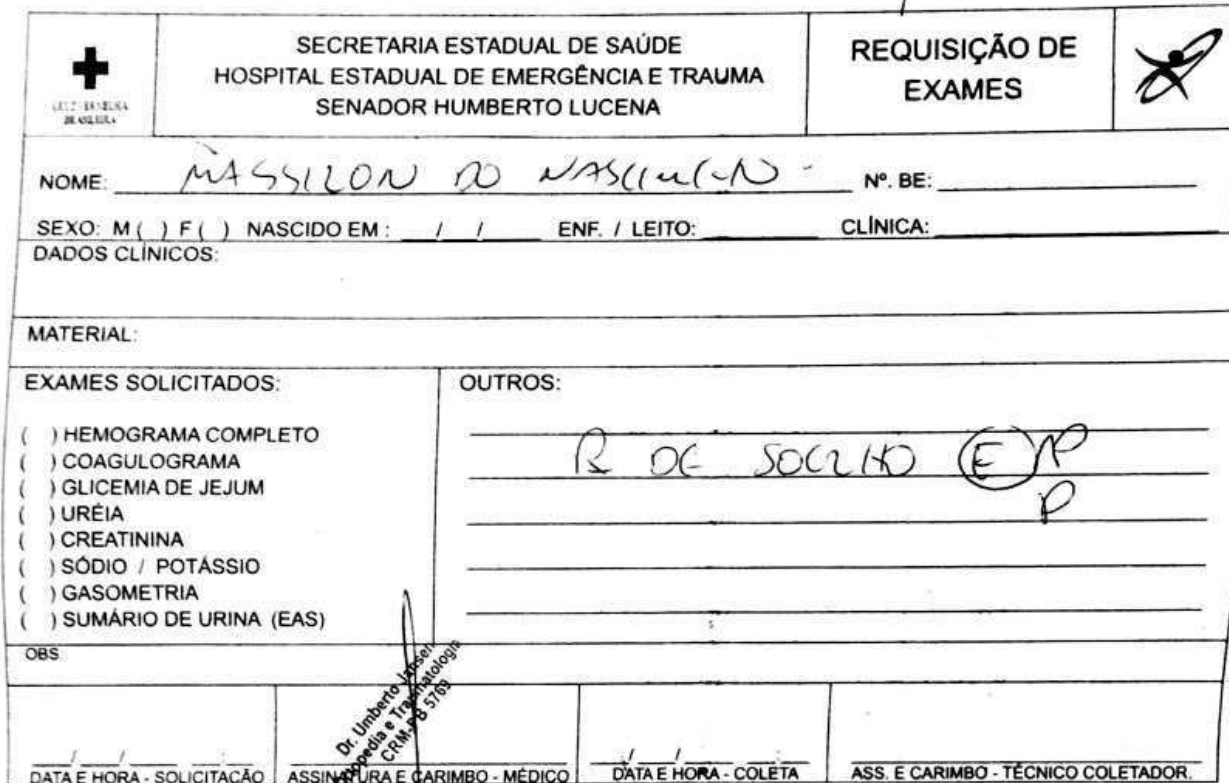 CRUZ VERMELHA
BRASILEIRA
SECRETARIA ESTADUAL DE SAÚDE
HOSPITAL ESTADUAL DE EMERGÊNCIA E TRAUMA
SENADOR HUMBERTO LUCENA
REQUISIÇÃO DE
EXAMES
NOME: MASSILON DO NASCIMEN Nº. BE:
SEXO: M ( ) F ( ) NASCIDO EM : / / ENF. / LEITO: CLÍNICA:
DADOS CLÍNICOS:
MATERIAL:
EXAMES SOLICITADOS:
( ) HEMOGRAMA COMPLETO
( ) COAGULOGRAMA
( ) GLICEMIA DE JEJUM
( ) URÉIA
( ) CREATININA
( ) SÓDIO / POTÁSSIO
( ) GASOMETRIA
( ) SUMÁRIO DE URINA (EAS)
OUTROS:
R DE JOELHO E AP
P
OBS
Dr. Umberto Jansen
Ortopedia e Traumatologia
CRM-PB 5769
/ / :
DATA E HORA - SOLICITAÇÃO
ASSINATURA E CARIMBO - MÉDICO
/ / :
DATA E HORA - COLETA
ASS. E CARIMBO - TÉCNICO COLETADOR.